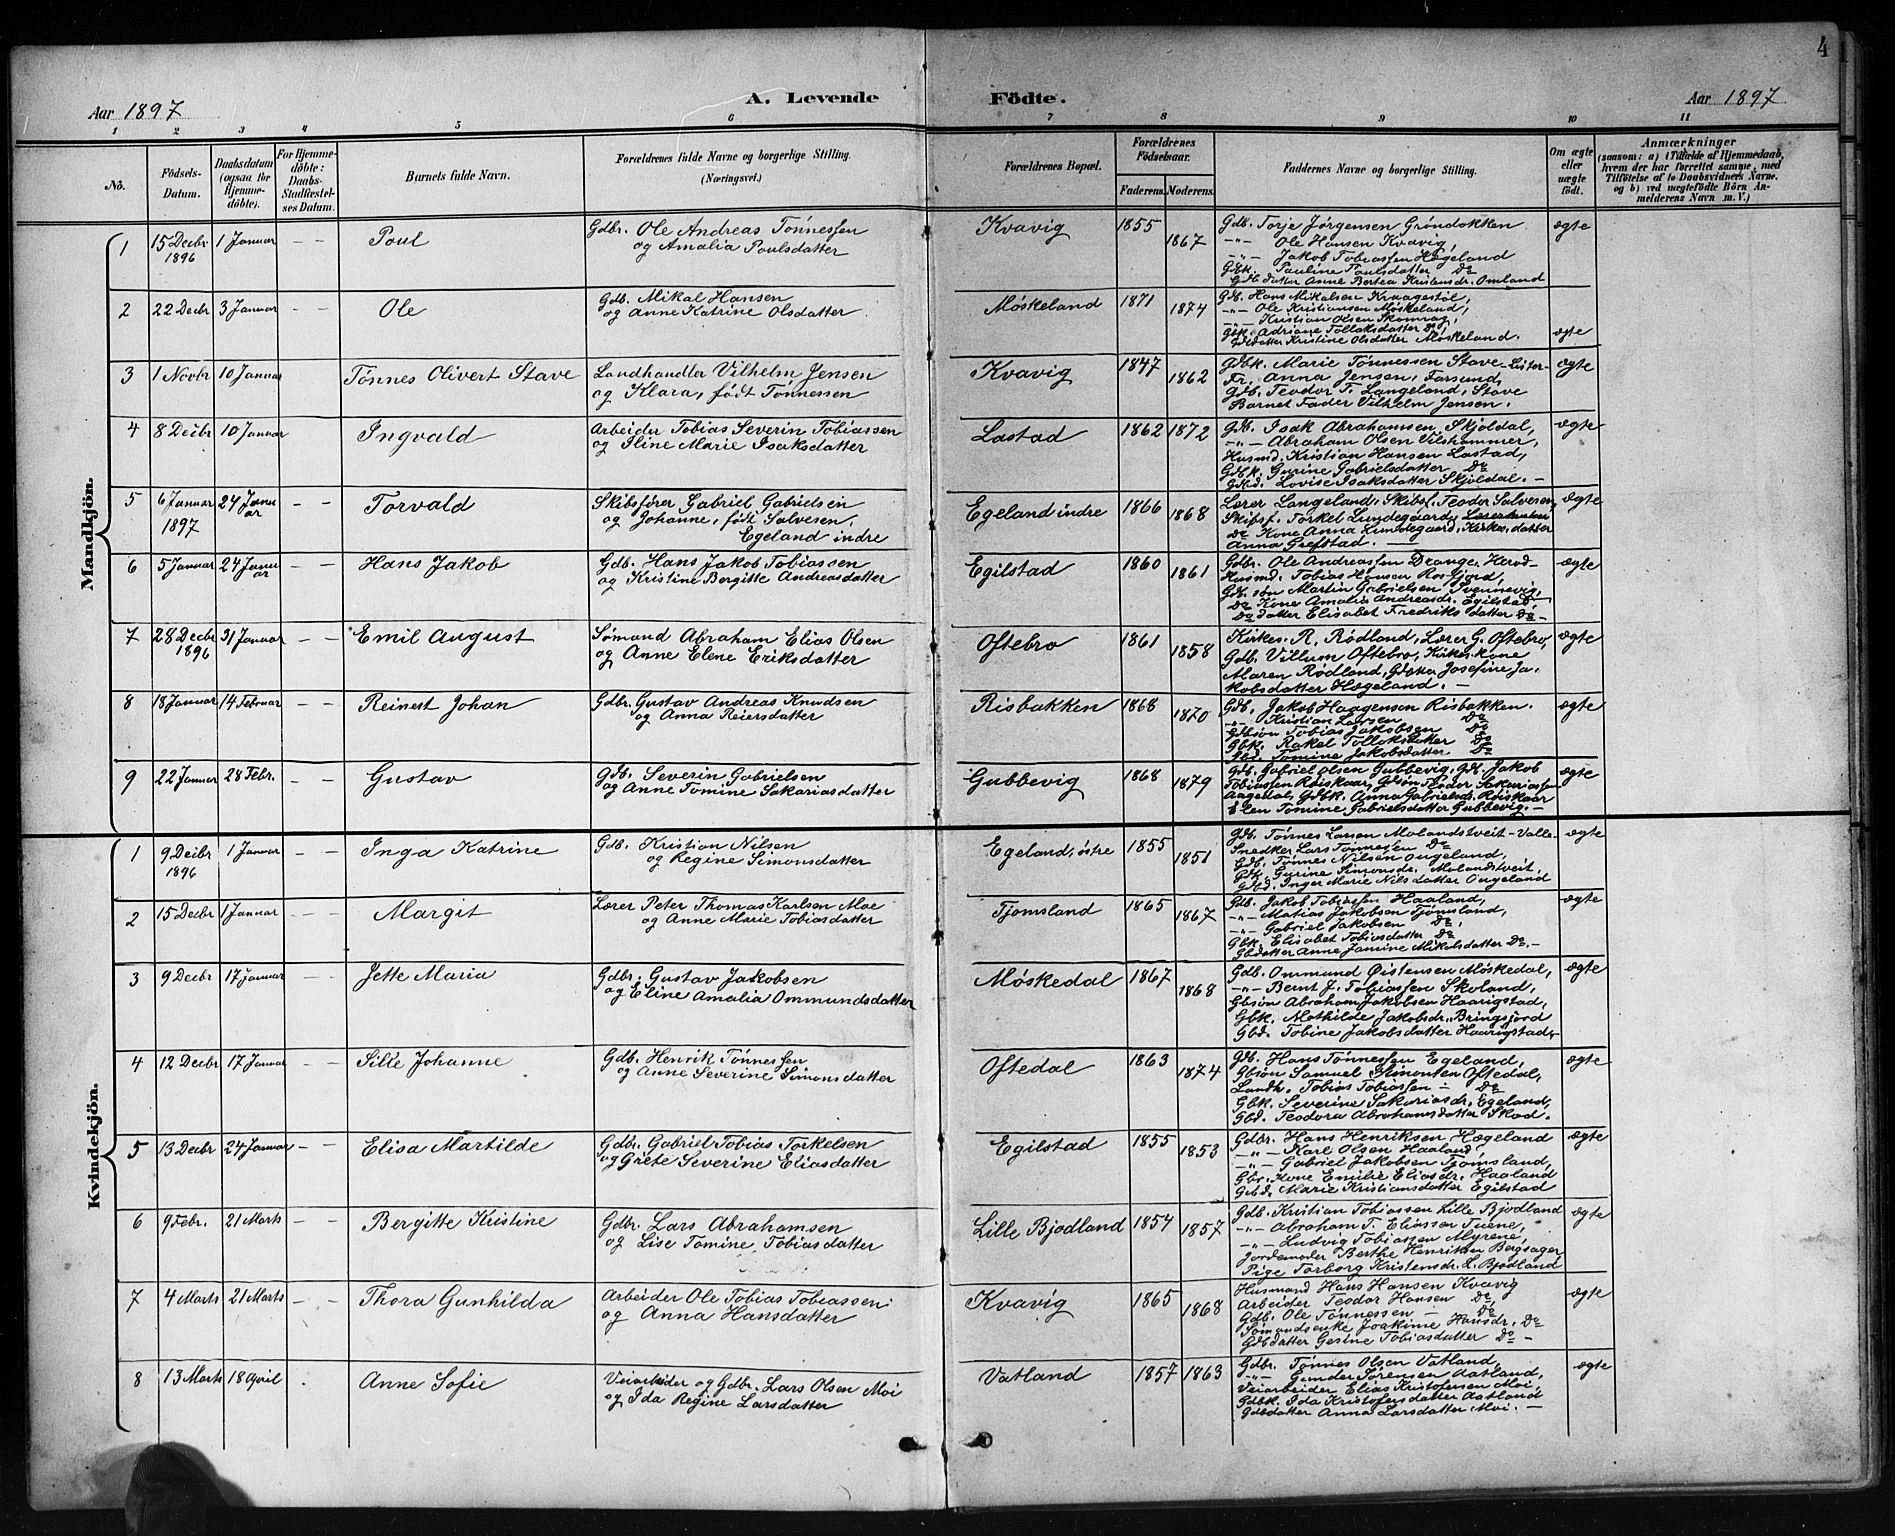 4
Aar 1897 A. Levende Födte. Aar 1897
1 2 3 4 5 6 7 8 9 10 11
No. Födsels-Datum. Daabsdatum (ogsaa for Hjemmedöbte). For Hjemmedöbte: Daabs-Stadfæstelses Datum. Barnets fulde Navn. Forældrenes fulde Navne og borgerlige Stilling. (Næringsvei.) Forældrenes Bopæl. Forældrenes Födselsaar. Faderens. Moderens. Faddernes Navne og borgerlige Stilling. Om ægte eller uægte födt. Anmærkninger
(saasom: a) i Tilfælde af Hjemmedaab,
hvem der har forrettet samme, med
Tilföielse af to Daabsvidners Navne.
og b) ved uægtefödte Börn Anmelderens Navn m. V.)
Mandkjön.
1 15 Decbr 1896 1 Januar — — Poul
Gdbr. Ole Andreas Tønnessen
og Amalia Poulsdatter
Kvavig 1855 1867
Gdb. Torje Jørgensen Grøndokken
-"- Ole Hansen Kvavig,
-"- Jakob Tobiassen Hægeland
Gbk. Pauline Paulsdatter Do
Gdb. datter Anne Bertea Kristensdr. Omland
ægte
2 22 Decbr 3 Januar — — Ole
Gdb. Mikal Hansen
og Anne Katrine Olsdatter
Møskeland 1871 1874
Gdb. Hans Mikalsen Kraagestøl,
-"- Ole Kristiansen Møskeland,
-"- Kristian Olsen
Gbk. Adriane Tollaksdatter Do,
Gdbdatter Kristine Olsdatter Møskeland.
ægte
3 1 Novbr 10 Januar Tønnes Olivert Stave
Landhandler Vilhelm Jensen
og Klara, født Tønnessen
Kvavig 1847 1862
Gdbk. Marie Tønnessen Stave-Lister-
Fr. Anna Jensen, Farsund,
Gdb. Teodor T. Langeland, Stave
Barnet Fader Vilhelm Jensen.
ægte
4 8 Decbr 10 Januar Ingvald
Arbeider Tobias Severin Tobiassen
og Iline Marie Isaksdatter
Lastad 1862 1872
Gdb. Isak Abrahamsen Skjoldal,
-"- Abraham Olsen Vilshammer,
Husmd. Kristian Hansen Lastad,
Gdbk. Gurine Gabrielsdatter Do
Gdbd. Lovise Isaksdatter Skjoldal. —
ægte
5 6 Januar 1897 24 Januar — — Torvald
Skibsfører Gabriel Gabrielsen
og Johanne, født Salvesen,
Egeland indre
Egeland indre 1866 1868
Lærer Langeland, Skibsf. Teodor Salvesen,
Skibsf. Torkel Lundegaard,
Do Kone Anna Lundegaard, Kirkes. datter
Anna Grefstad. —
ægte
6 5 Januar 24 Januar — — Hans Jakob
Gdb. Hans Jakob Tobiassen
og Kristine Bergitte Andreasdatter
Egilstad 1860 1861
Gdbr. Ole Andreassen Drange, Herod-
Husmd. Tobias Hansen Rosfjord,
Gdb. søn Martin Gabrielsen Svennevig,
Do Kone Amalia Andreasdr. Egilstad,
Do datter Elisabet Fredriksdatter Do —
ægte
7 28 Decbr 1896 31 Januar — — Emil August
Sømand Abraham Elias Olsen
og Anne Elene Eriksdatter
Oftebro 1861 1858
Kirkes. R. Rødland, Lærer G. Oftebro,
Gdb. Villum Oftebro, Kirkes. kone
Maren Rødland, Gdbdtter Josefine Ja-
kobsdatter Hægeland. —
ægte
8 18 Januar 14 Februar — — Reinert Johan
Gdbr. Gustav Andreas Knudsen
og Anna Reiersdatter
Risbakken 1868 1870
Gdb. Jakob Haagensen Risbakken.
-"- Kristian Larsen Do
Gdbsøn Tobias Jakobsen Do
Gbk. Rakel Tollaksdatter Do
Gbd. Tomine Jakobsdatter Do
ægte
9 22 Januar 28 Febr. — — Gustav
Gdb. Severin Gabrielsen
og Anne Tomine Sakariasdatter
Gubbevig 1868 1879
Gdb. Gabriel Olsen Gubbevig, Gdb. Jakob
Tobiassen Røiskaar, Gdbsøn Teodor Sakariassen
Aagedal, Gdbk. Anna Gabrielsdr. Røiskaar
Elen Tomine Gabrielsdatter Gubbevig. —
ægte
Kvindekjön.
1 9 Decbr 1896 1 Januar — — Inga Katrine
Gdb. Kristian Nilsen
og Regine Simonsdatter
Egeland, østre 1855 1851
Gdb. Tønnes Larsen Molandstveit-Valle-
Snedker Lars Tønnessen Do
Gdb. Tønnes Nilsen Augeland,
Gdbk. Gurine Simonsdr. Molandstveit,
Gdbd. Inger Marie Nilsdatter Augeland
ægte
2 15 Decbr 1 Januar — — Margit
Lærer Peter Thomas Karlsen Moe
og Anne Marie Tobiasdatter
Tjomsland 1865 1867
Gdb. Jakob Tobiassen Haaland,
-"- Matias Jakobsen Tjomsland,
-"- Gabriel Jakobsen Do,
Gbk. Elisabet Tobiasdatter Do
Gbdatter Anne Jamine Mikalsdatter Do. —
ægte
3 9 Decbr 17 Januar — — Jette Maria
Gdbr. Gustav Jakobsen
og Eline Amalia Ommundsdatter
Møskedal 1867 1868
Gdb. Ommund Øistensen Møskedal,
-"- Bernt J. Tobiassen Skoland,
Gbsøn Abraham Jakobsen Haarigstad,
Gbk. Mathilde Jakobsdr. Bringsjord
Gbd. Tobine Jakobsdatter Haarigstad,
ægte
4 12 Decbr 17 Januar — — Sille Johanne
Gdb. Henrik Tønnessen
og Anne Severine Simonsdatter
Oftedal 1863 1874
Gdb. Hans Tønnessen Egeland,
Gbsøn Samuel Simonsen Oftedal,
Landh. Tobias Tobiassen — Do
Gbk. Severine Sakariasdr. Egeland,
Gbd. Teodora Abrahamsdatter Skod.
ægte
5 13 Decbr 24 Januar — Elisa Martilde
Gdbr. Gabriel Tobias Torkelsen
og Grete Severine Eliasdatter
Egilstad 1855 1853
Gdbr. Hans Henriksen Hægeland
-"- Karl Olsen Haaland,
-"- Gabriel Jakobsen Tjomsland,
Gbr. Kone Emilie Eliasdr. Haaland
Gbd. Marie Kristiansdatter Egilstad
ægte
6 9 Febr. 21 Marts — — Bergitte Kristine
Gdbr. Lars Abrahamsen
og Lise Tomine Tobiasdatter
Lille Bjodland 1854 1857
Gdb. Kristian Tobiassen Lille Bjodland
-"- Abraham T. Eliassen Teiene,
-"- Ludvig Tobiassen Myrene,
Jordemoder Berthe Henriksen Bergsager,
Pige Torborg Kristensdr. L. Bjodland
ægte
7 4 Marts 21 Marts — — Thora Gunhilda
Arbeider Ole Tobias Tobiassen
og Anna Hansdatter
Kvavig 1865 1868
Husmand Hans Hansen Kvavig
Arbeider Teodor Hansen Do,
Gdb. Ole Tønnessen — Do
Sømandsenke Joakime Hansdr, Do
Gdbdatter Gesine Tobiasdatter Do —
ægte
8 13 Marts 18 April . Anne Sofie
Veiarbeider og Gdbr. Lars Olsen Moi
og Ida Regine Larsdatter
Vatland 1857 1863
Gdbr. Tønnes Olsen Vatland,
-"- Gunder Sørensen Aatland,
Veiarbeider Elias Kristofersen Moi,
Gdbk. Ida Kristofersdatter Aatland
Gdbdatter Anna Larsdatter Moi. —
ægte